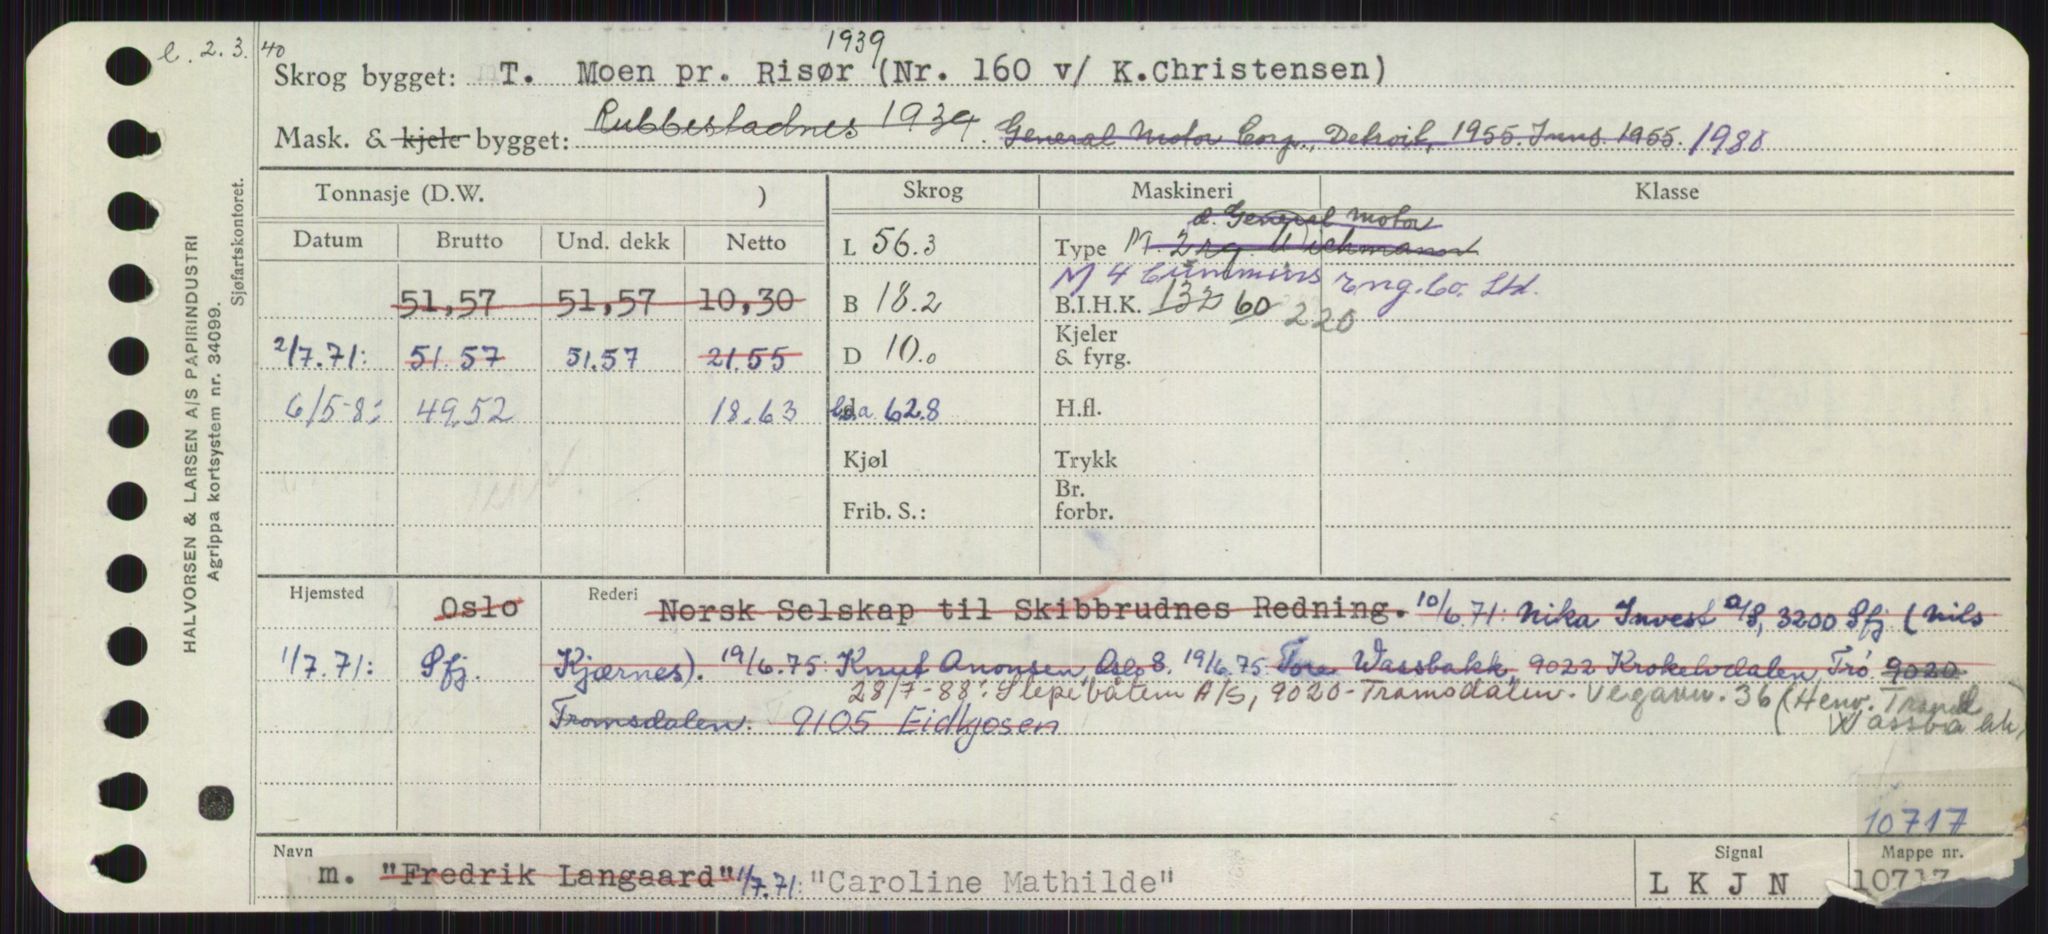 HALVORSEN & LARSEN A/S PAPIRINDUSTRI
Agrippa kortsystem nr. 34099.
Sjøfartskontoret.
2. 3. 40
1939
Skrog bygget: T. Moen pr. Risør (Nr. 160 v/ K.Christensen)
Mask. & kjele bygget: Rubbestadnes 1934. General Motor Corp., Detroit, 1955. Inns. 1955. 1980
Tonnasje (D.W. ) Skrog Maskineri Klasse
Datum Brutto Und. dekk Netto
d. General Motor
L 56.3 Type M. 2 Wichmann
M 4 Cummins Eng. Co. Ltd.
51,57 51,57 10,30 B 18.2 B.I.H.K. 132 60 220
2/7.71: 51.57 51.57 21.55 D 10.0 Kjeler & fyrg.
6/5-8: 49,52 18.63 62.8 H.fl.
Kjøl Trykk
Frib. S.: Br. forbr.
Hjemsted Oslo Rederi Norsk Selskap til Skibbrudnes Redning. 10/6.71: Nika Invest a/s, 3200 Sfj (Nils
1/7.71: Sfj. Kjærnes). 19/6.75: Knut Anonsen, Oslo 8. 19/6.75 Tore Wassbakk, 9022 Krokelvdalen, Trø 9020
28/7-88: Slepebåten A/S, 9020-Tromsdalen. Vegavn. 36 (Henv. Trond
Tromsdalen. 9105 Eidkjosen Wassbakk)
10717
Navn Signal Mappe nr.
m. "Fredrik Langaard" 1/7.71: "Caroline Mathilde" L K J N 10717